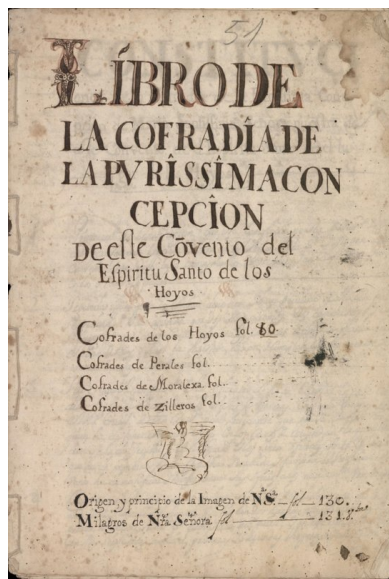 51
LÍBRO DE
LA COFRADÎA DE
LA PVRÎSSÎMA CON
CEPCÎON
De este Cōvento del
Espiritu Santo de los
Hoyos
Cofrades de los Hoyos fol. 80.
Cofrades de Perales fol.
Cofrades de Moralexa fol.
Cofrades de Zilleros fol.
Origen y principio de la Imagen de N. S.ª fol 130.
Milagros de Nrã. Señora. fol 131.